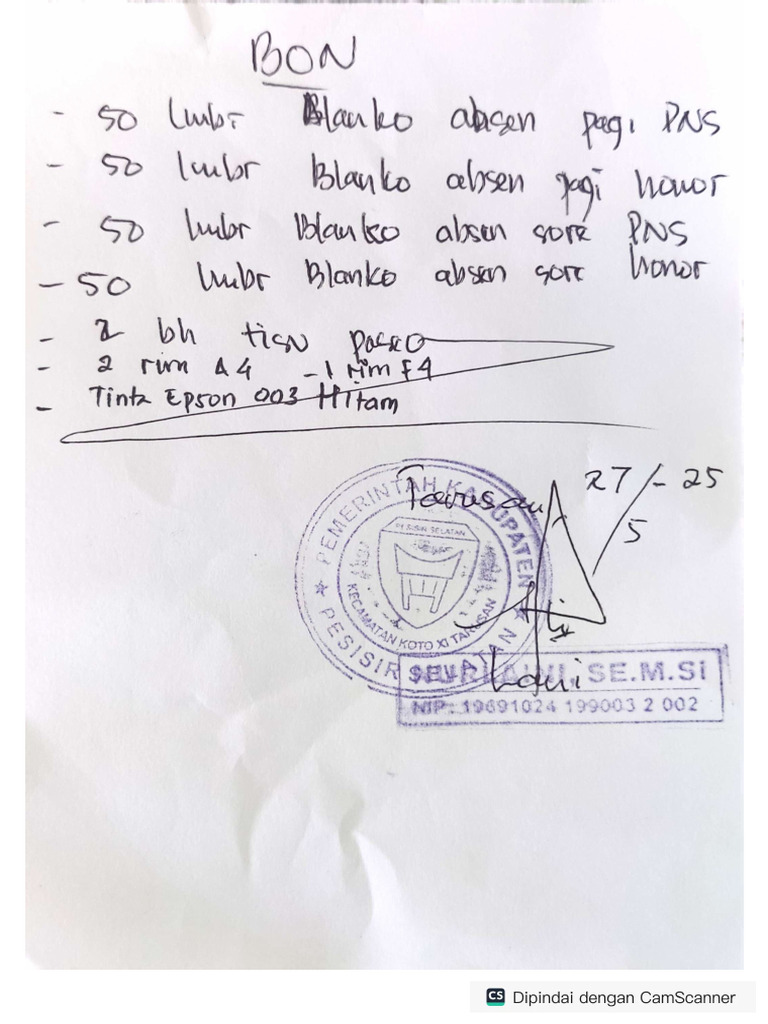 BON
- 50 lmbr Blanko absen pagi PNS
- 50 lmbr Blanko absen pagi honor
- 50 lmbr Blanko absen sore PNS
- 50 lmbr Blanko absen sore honor
- 2 bh tisu paseo
- 2 rim A4 - 1 rim F4
- Tinta Epson 003 Hitam
Tarusan 27/5-25
PEMERINTAH KABUPATEN
PESISIR SELATAN
PESISIR SELATAN
KECAMATAN KOTO XI TARUSAN
SE.M.Si
NIP: 19691024 199003 2 002
CS Dipindai dengan CamScanner